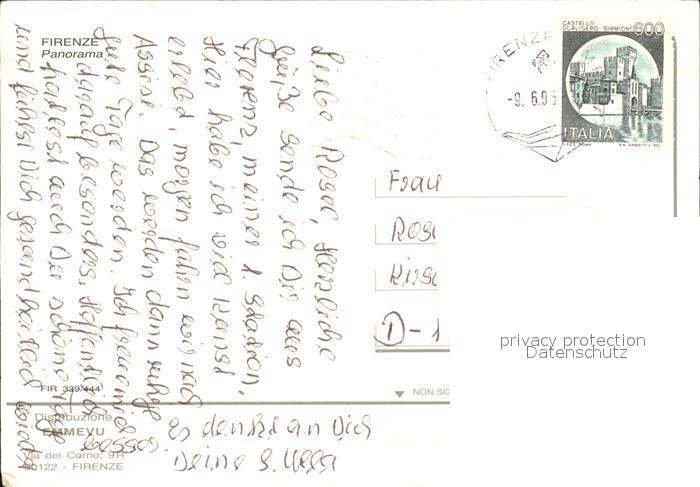 FIRENZE
Panorama
Liebe Rosa, Herzliche
Grüße sende ich Dir aus
Florenz, meiner 1. Station.
Hier habe ich viel Kunst
erlebt, morgen fahren wir nach
Assisi. Das werden dann ruhige
gute Tage werden. Ich freue mich
darauf besonders. Hoffentlich
hattest auch Du schöne Tage
und fühlst Dich gesundheitlich wieder
besser.
Es denkt an Dich
Deine S.
FIRENZE
-9. 6.95
CASTELLO
SCALIGERO - SIRMIONE
600
ITALIA
I.P.Z.S. ROMA
Frau
D-1
privacy protection
Datenschutz
FIR 339/444
NON SC
Distribuzione
EMMEVU
Via del Corno, 9R
50122 - FIRENZE